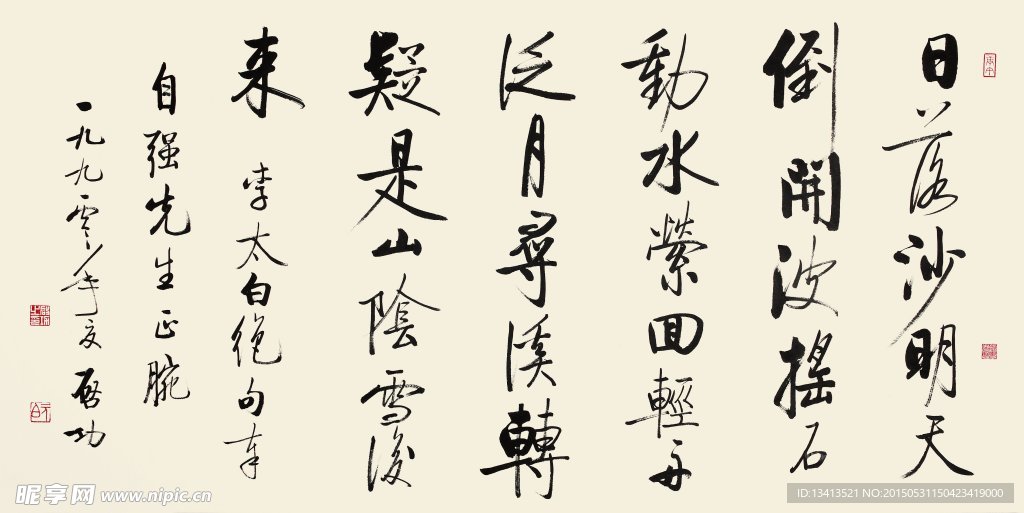 日落沙明天
倒開波搖石
動水縈回輕舟
泛月尋溪轉
疑是山陰雪後
来 李太白絕句奉
自强先生正腕
一九九零年夏 启功
昵享网 www.nipic.cn
ID:13413521 NO:20150531150423419000